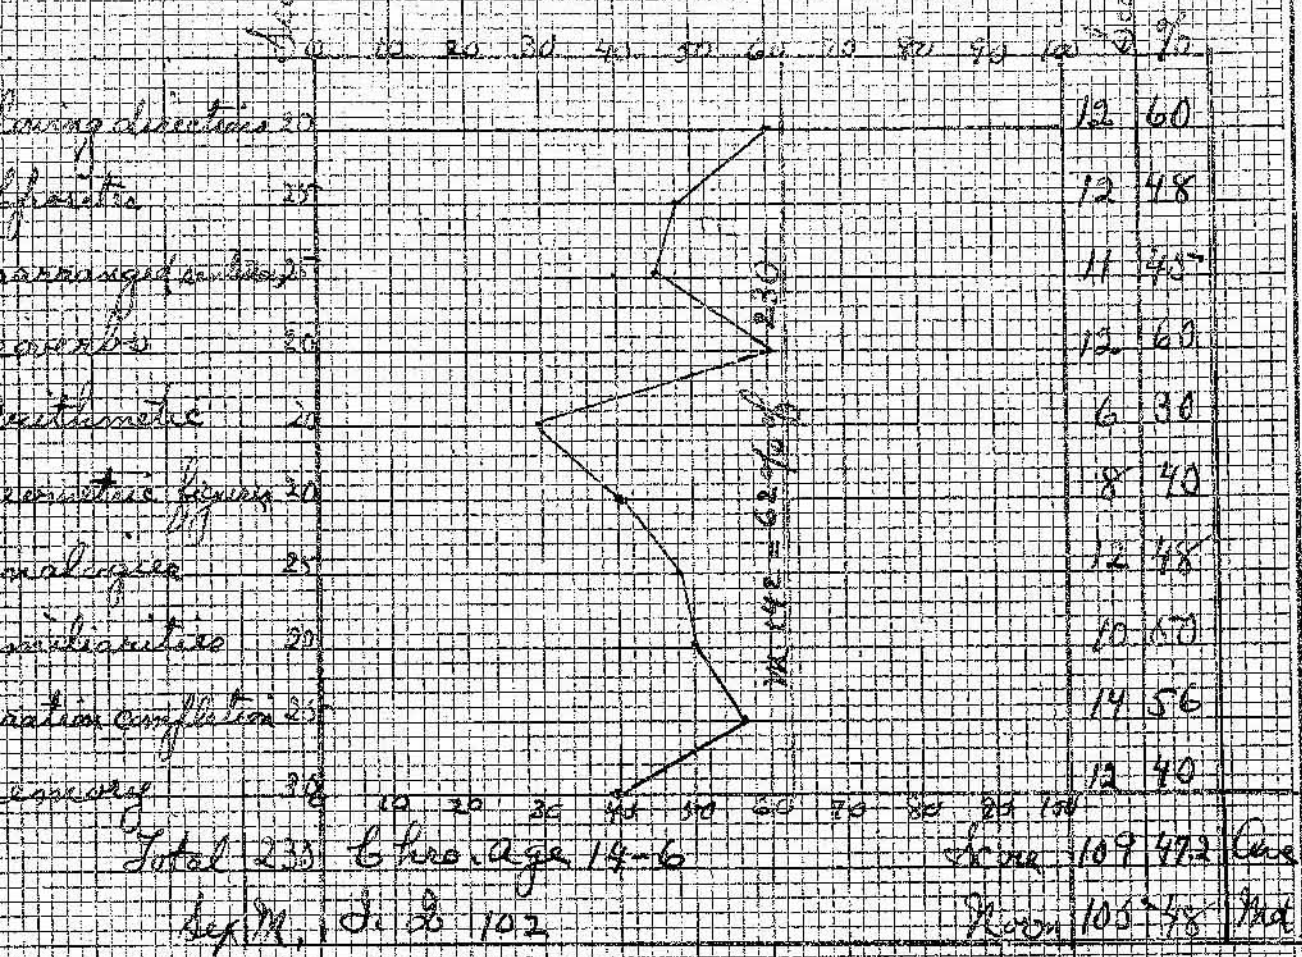 0 10 20 30 40 50 60 70 80 90 100 %
lowing directions 20 12 60
pposites 25 12 48
sarranged 25 11 45
overbs 20 12 60
rithmetic 20 6 30
eometric figures 20 8 40
nalogies 25 12 48
miliarities 20 10 50
rration completion 25 14 56
emory 30 12 40
230
= 62% of
0 10 20 30 40 50 60 70 80 90 100
Total 233 Chro. Age 14-6 Score 109 47.2 Ave
Sex M. I. Q 102 Norm 105 48 Md